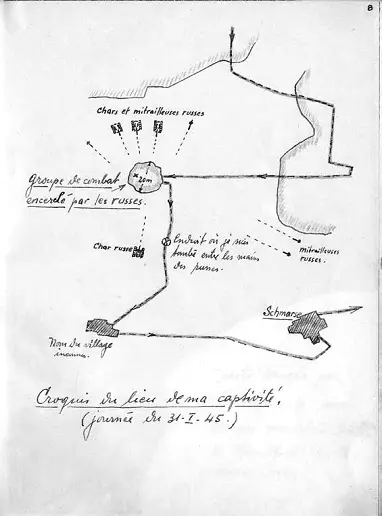 8
Chars et mitrailleuses russes
Groupe de combat
encerclé par les russes.
x 20m
Char russe
Endroit où je suis
tombé entre les mains
des russes.
mitrailleuses
russes.
Schmarse
Nom du village
inconnu.
Croquis du lieu de ma captivité.
(journée du 31-I-45.)